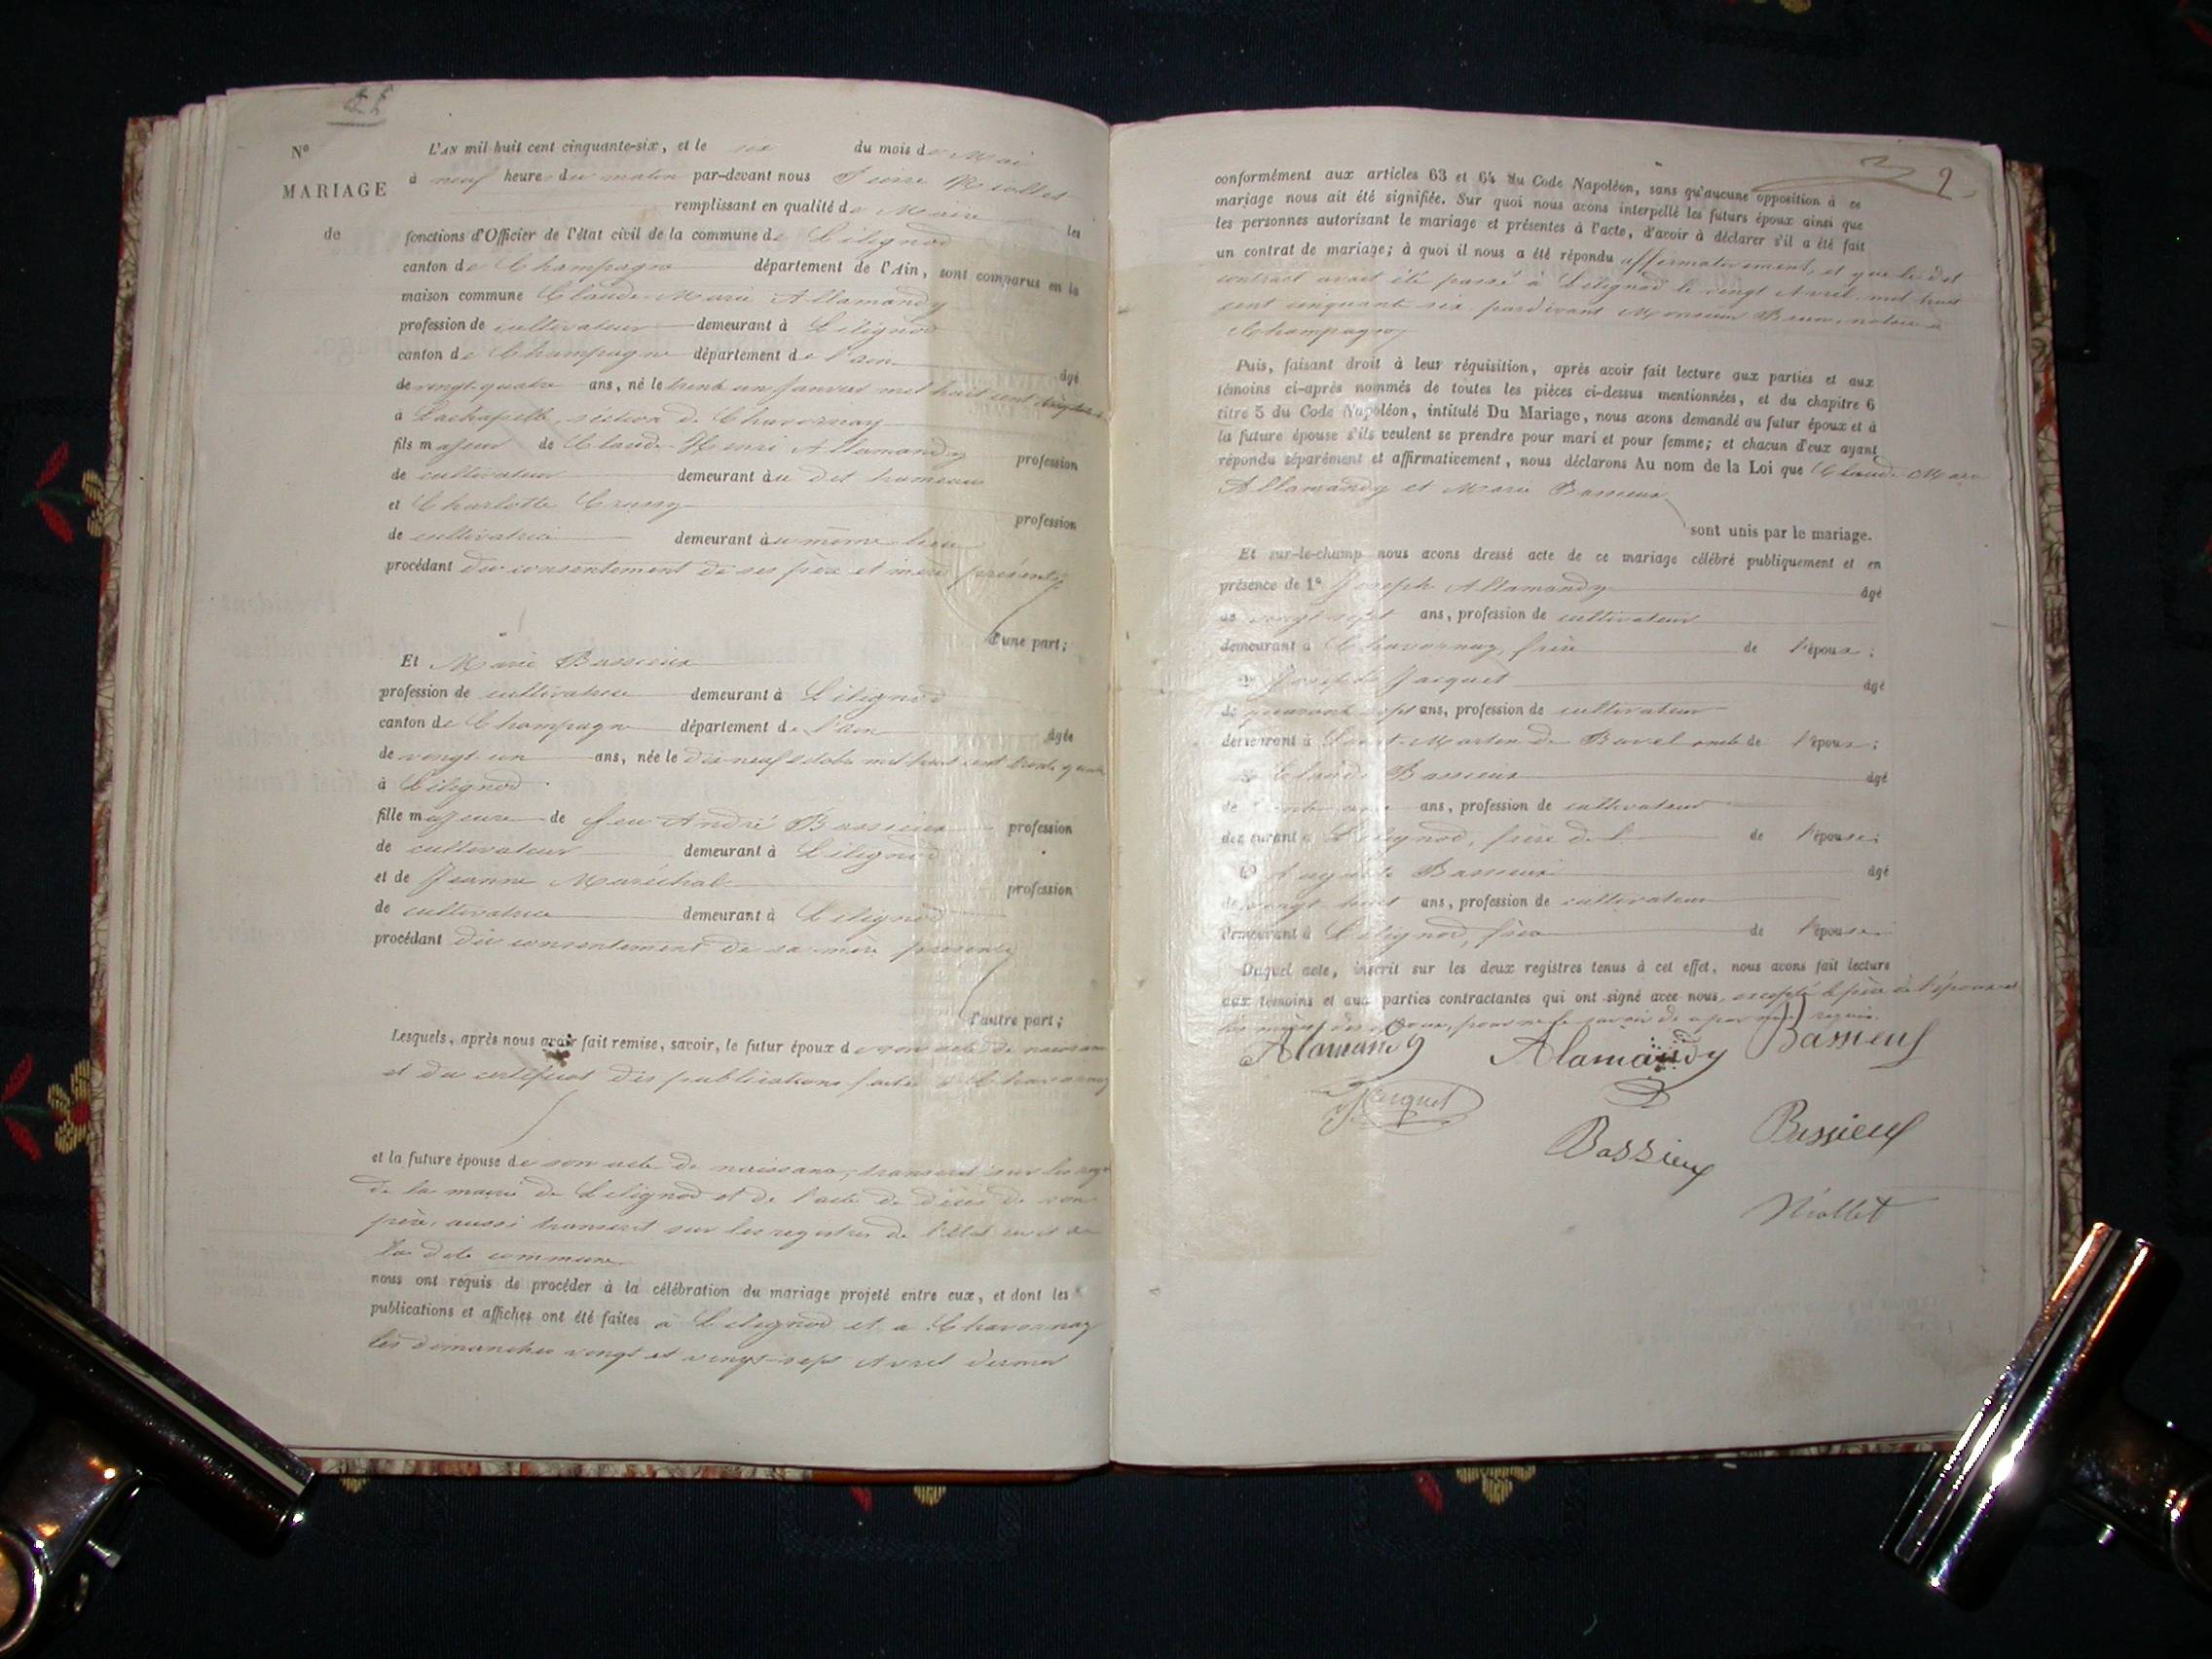 Nº
MARIAGE
de
L'AN mil huit cent cinquante-six, et le six du mois de Mai
à neuf heures du matin par-devant nous Pierre
remplissant en qualité de Maire les
fonctions d'Officier de l'état civil de la commune de Lilignod
canton de Champagne département de l'Ain, sont comparus en la
maison commune Claude Marie Allamandy
profession de cultivateur demeurant à Lilignod
canton de Champagne département de l'ain âgé
de vingt-quatre ans, né le trente un Janvier mil huit cent
à Lachapelle, section de Chavornay
fils majeur de Claude-Henri Allamandy profession
de cultivateur demeurant au dit hameau
et Charlotte profession
de cultivatrice demeurant au même lieu
procédant du consentement de ses père et mère présents
d'une part;
Et Marie Bassieux
profession de cultivatrice demeurant à Lilignod
canton de Champagne département de l'ain âgée
de vingt un ans, née le dix-neuf octobre mil huit cent trente quatre
à Lilignod
fille majeure de feu André Bassieux profession
de cultivateur demeurant à Lilignod
et de Jeanne Maréchal profession
de cultivatrice demeurant à Lilignod
procédant du consentement de sa mère présente
d'autre part;
Lesquels, après nous avoir fait remise, savoir, le futur époux de son acte de
et du certificat des publications faites à Chavornay
et la future épouse de son acte de naissance, transcrit sur les
de la mairie de Lilignod et de l'acte de décès de son
père, aussi transcrit sur les registres de l'état civil de
la dite commune
nous ont requis de procéder à la célébration du mariage projeté entre eux, et dont les
publications et affiches ont été faites à Lilignod et à Chavornay
les dimanches vingt et vingt-sept Avril dernier
2
conformément aux articles 63 et 64 du Code Napoléon, sans qu'aucune opposition à ce
mariage nous ait été signifiée. Sur quoi nous avons interpellé les futurs époux ainsi que
les personnes autorisant le mariage et présentes à l'acte, d'avoir à déclarer s'il a été fait
un contrat de mariage; à quoi il nous a été répondu affirmativement, et que le dit
contract avait été passé à Lilignod le vingt Avril mil huit
cent cinquante six pardevant Monsieur Brun, notaire à
Champagne
Puis, faisant droit à leur réquisition, après avoir fait lecture aux parties et aux
témoins ci-après nommés de toutes les pièces ci-dessus mentionnées, et du chapitre 6
titre 5 du Code Napoléon, intitulé Du Mariage, nous avons demandé au futur époux et à
la future épouse s'ils veulent se prendre pour mari et pour femme; et chacun d'eux ayant
répondu séparément et affirmativement, nous déclarons Au nom de la Loi que Claude Marie
Allamandy et Marie Bassieux
sont unis par le mariage.
Et sur-le-champ nous avons dressé acte de ce mariage célébré publiquement et en
présence de 1º Joseph Allamandy âgé
de vingt sept ans, profession de cultivateur
demeurant à Chavornay, frère de l'époux;
2º Joseph Jacquet âgé
de quarante sept ans, profession de cultivateur
demeurant à Saint-Martin de Bavel oncle de l'époux;
3º Claude Bassieux âgé
de ans, profession de cultivateur
demeurant à Lilignod, frère de l'épouse;
4º Auguste Bassieux âgé
de vingt huit ans, profession de cultivateur
demeurant à Lilignod, frère de l'épouse
Duquel acte, inscrit sur les deux registres tenus à cet effet, nous avons fait lecture
aux témoins et aux parties contractantes qui ont signé avec nous, excepté le père de l'époux et
les mères des époux, pour ne le savoir de ce requis.
Alamandy Alamandy Bassieux
Jacquet
Bassieux Bassieux